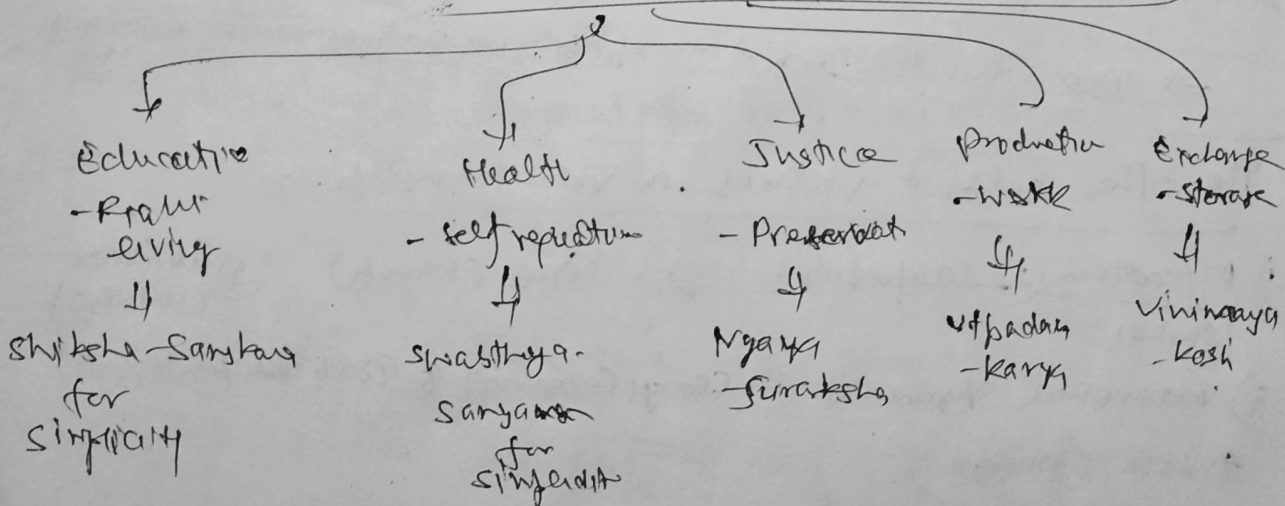 Education
- Right
living
Shiksha - Sanskar
for
simplicity
Health
- self regulation
Swasthya -
Sanyam
for
simplicity
Justice
- Preservation
Nyaya
- Suraksha
Production
- work
Utpadan
- Karya
Exchange
- storage
Vinimaya
- Kosh